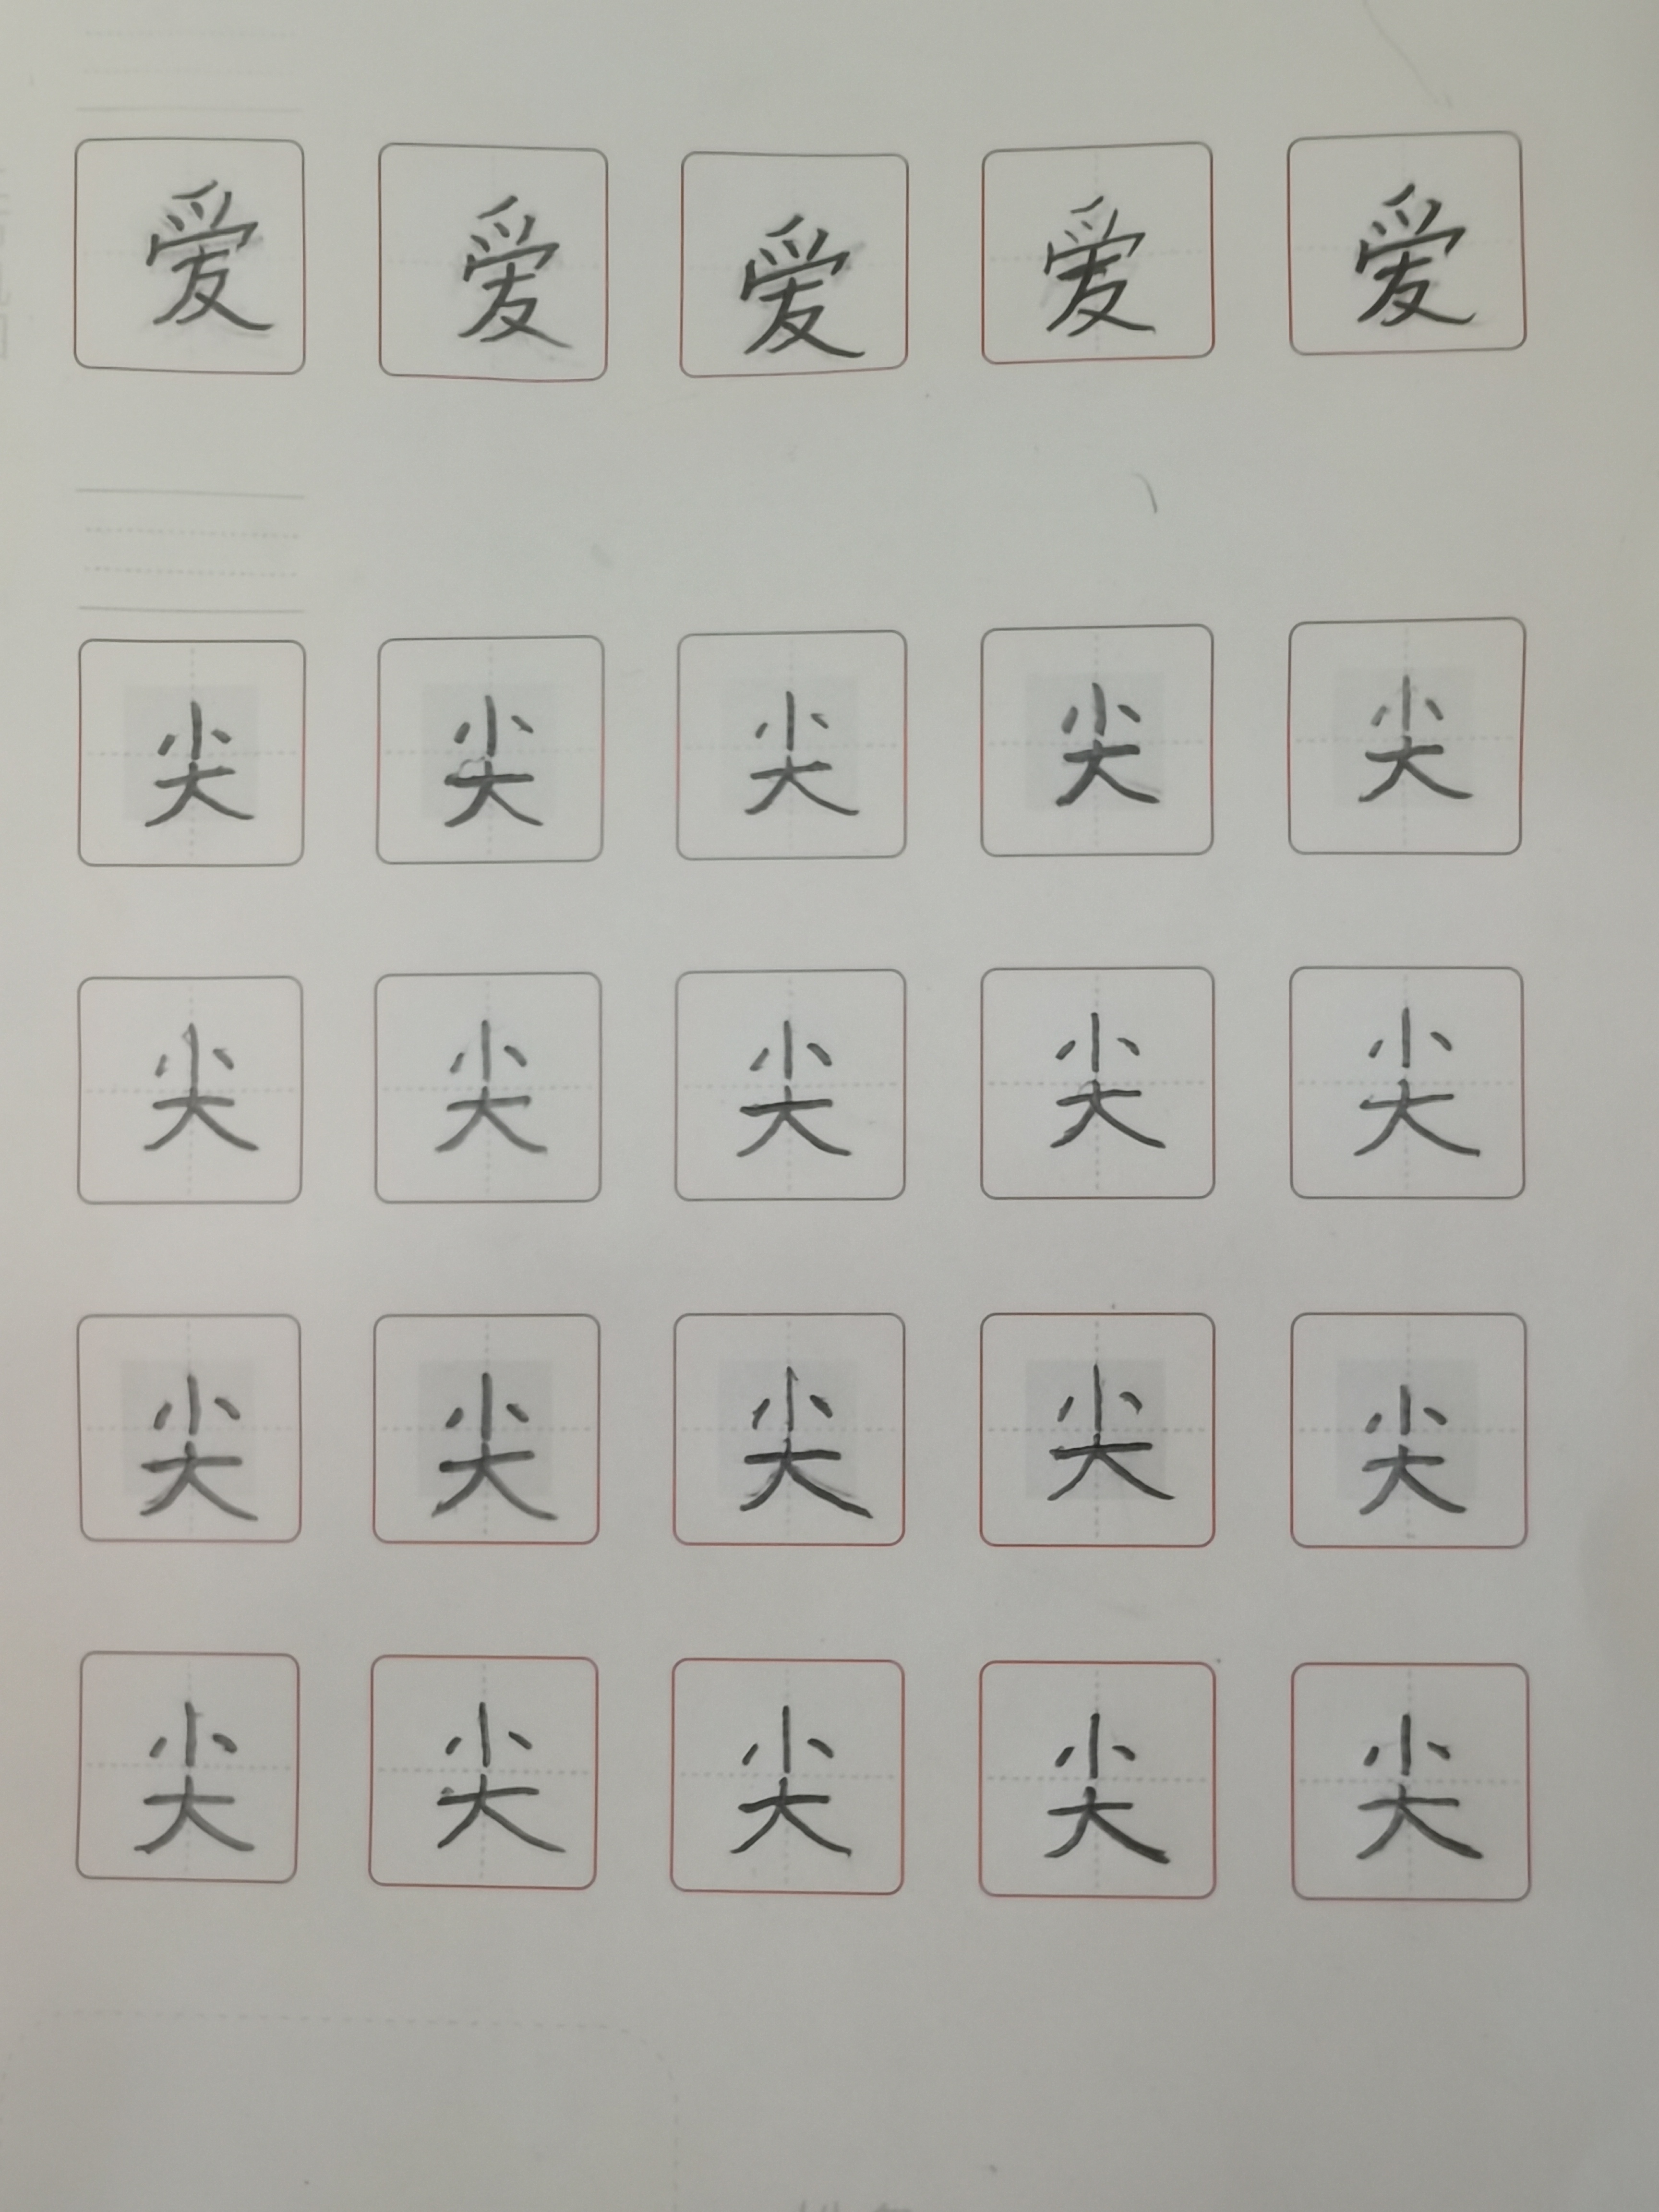 爱 爱 爱 爱 爱
尖 尖 尖 尖 尖
尖 尖 尖 尖 尖
尖 尖 尖 尖 尖
尖 尖 尖 尖 尖